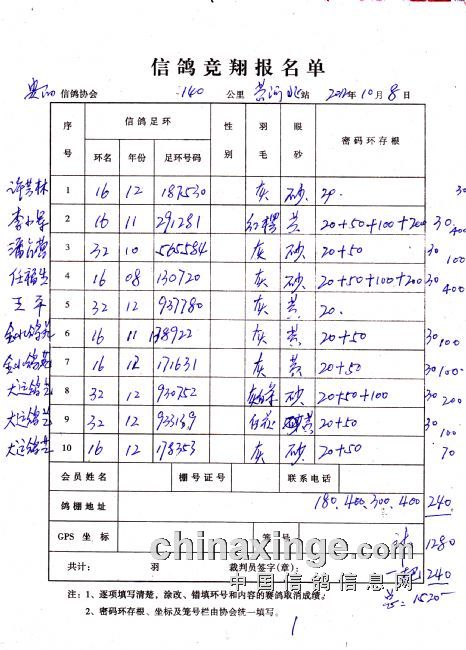 信鸽竞翔报名单
信鸽协会 140 公里 黄河北站 2012年10月8日
序号 信鸽足环 性别 羽毛 眼砂 密码环存根
环名 年份 足环号码
1 16 12 187530 灰 砂 20. 30
李 2 16 11 291281 红楞 黄 20+50+100+200 30 400
潘 3 32 10 565584 灰 砂 20+50 30 100
任福生 4 16 08 130720 灰 砂 20+50+100+200 30 400
王平 5 32 12 937780 灰 黄 20.
金山鸽苑 6 16 11 178922 灰 黄 20+50 30 100
金山鸽苑 7 16 12 171631 灰 黄 20+50 30 100
大运鸽苑 8 32 12 930752 砂 20+50+100 30 200
大运鸽苑 9 32 12 933159 白花 黄 20+50 30 100
大运鸽苑 10 16 12 178353 灰 砂 20+50 70
会员姓名 棚号证号 联系电话
鸽棚地址 180.400.300.400 240
GPS 坐标 笼号 计 1280
共计: 羽 裁判员签字(章): 240
共=1520
注:1、逐项填写清楚,涂改、错填环号和内容的赛鸽取消成绩。
2、密码环存根、坐标及笼号栏由协会统一填写。
1
chinaxinge.com
中国信鸽信息网